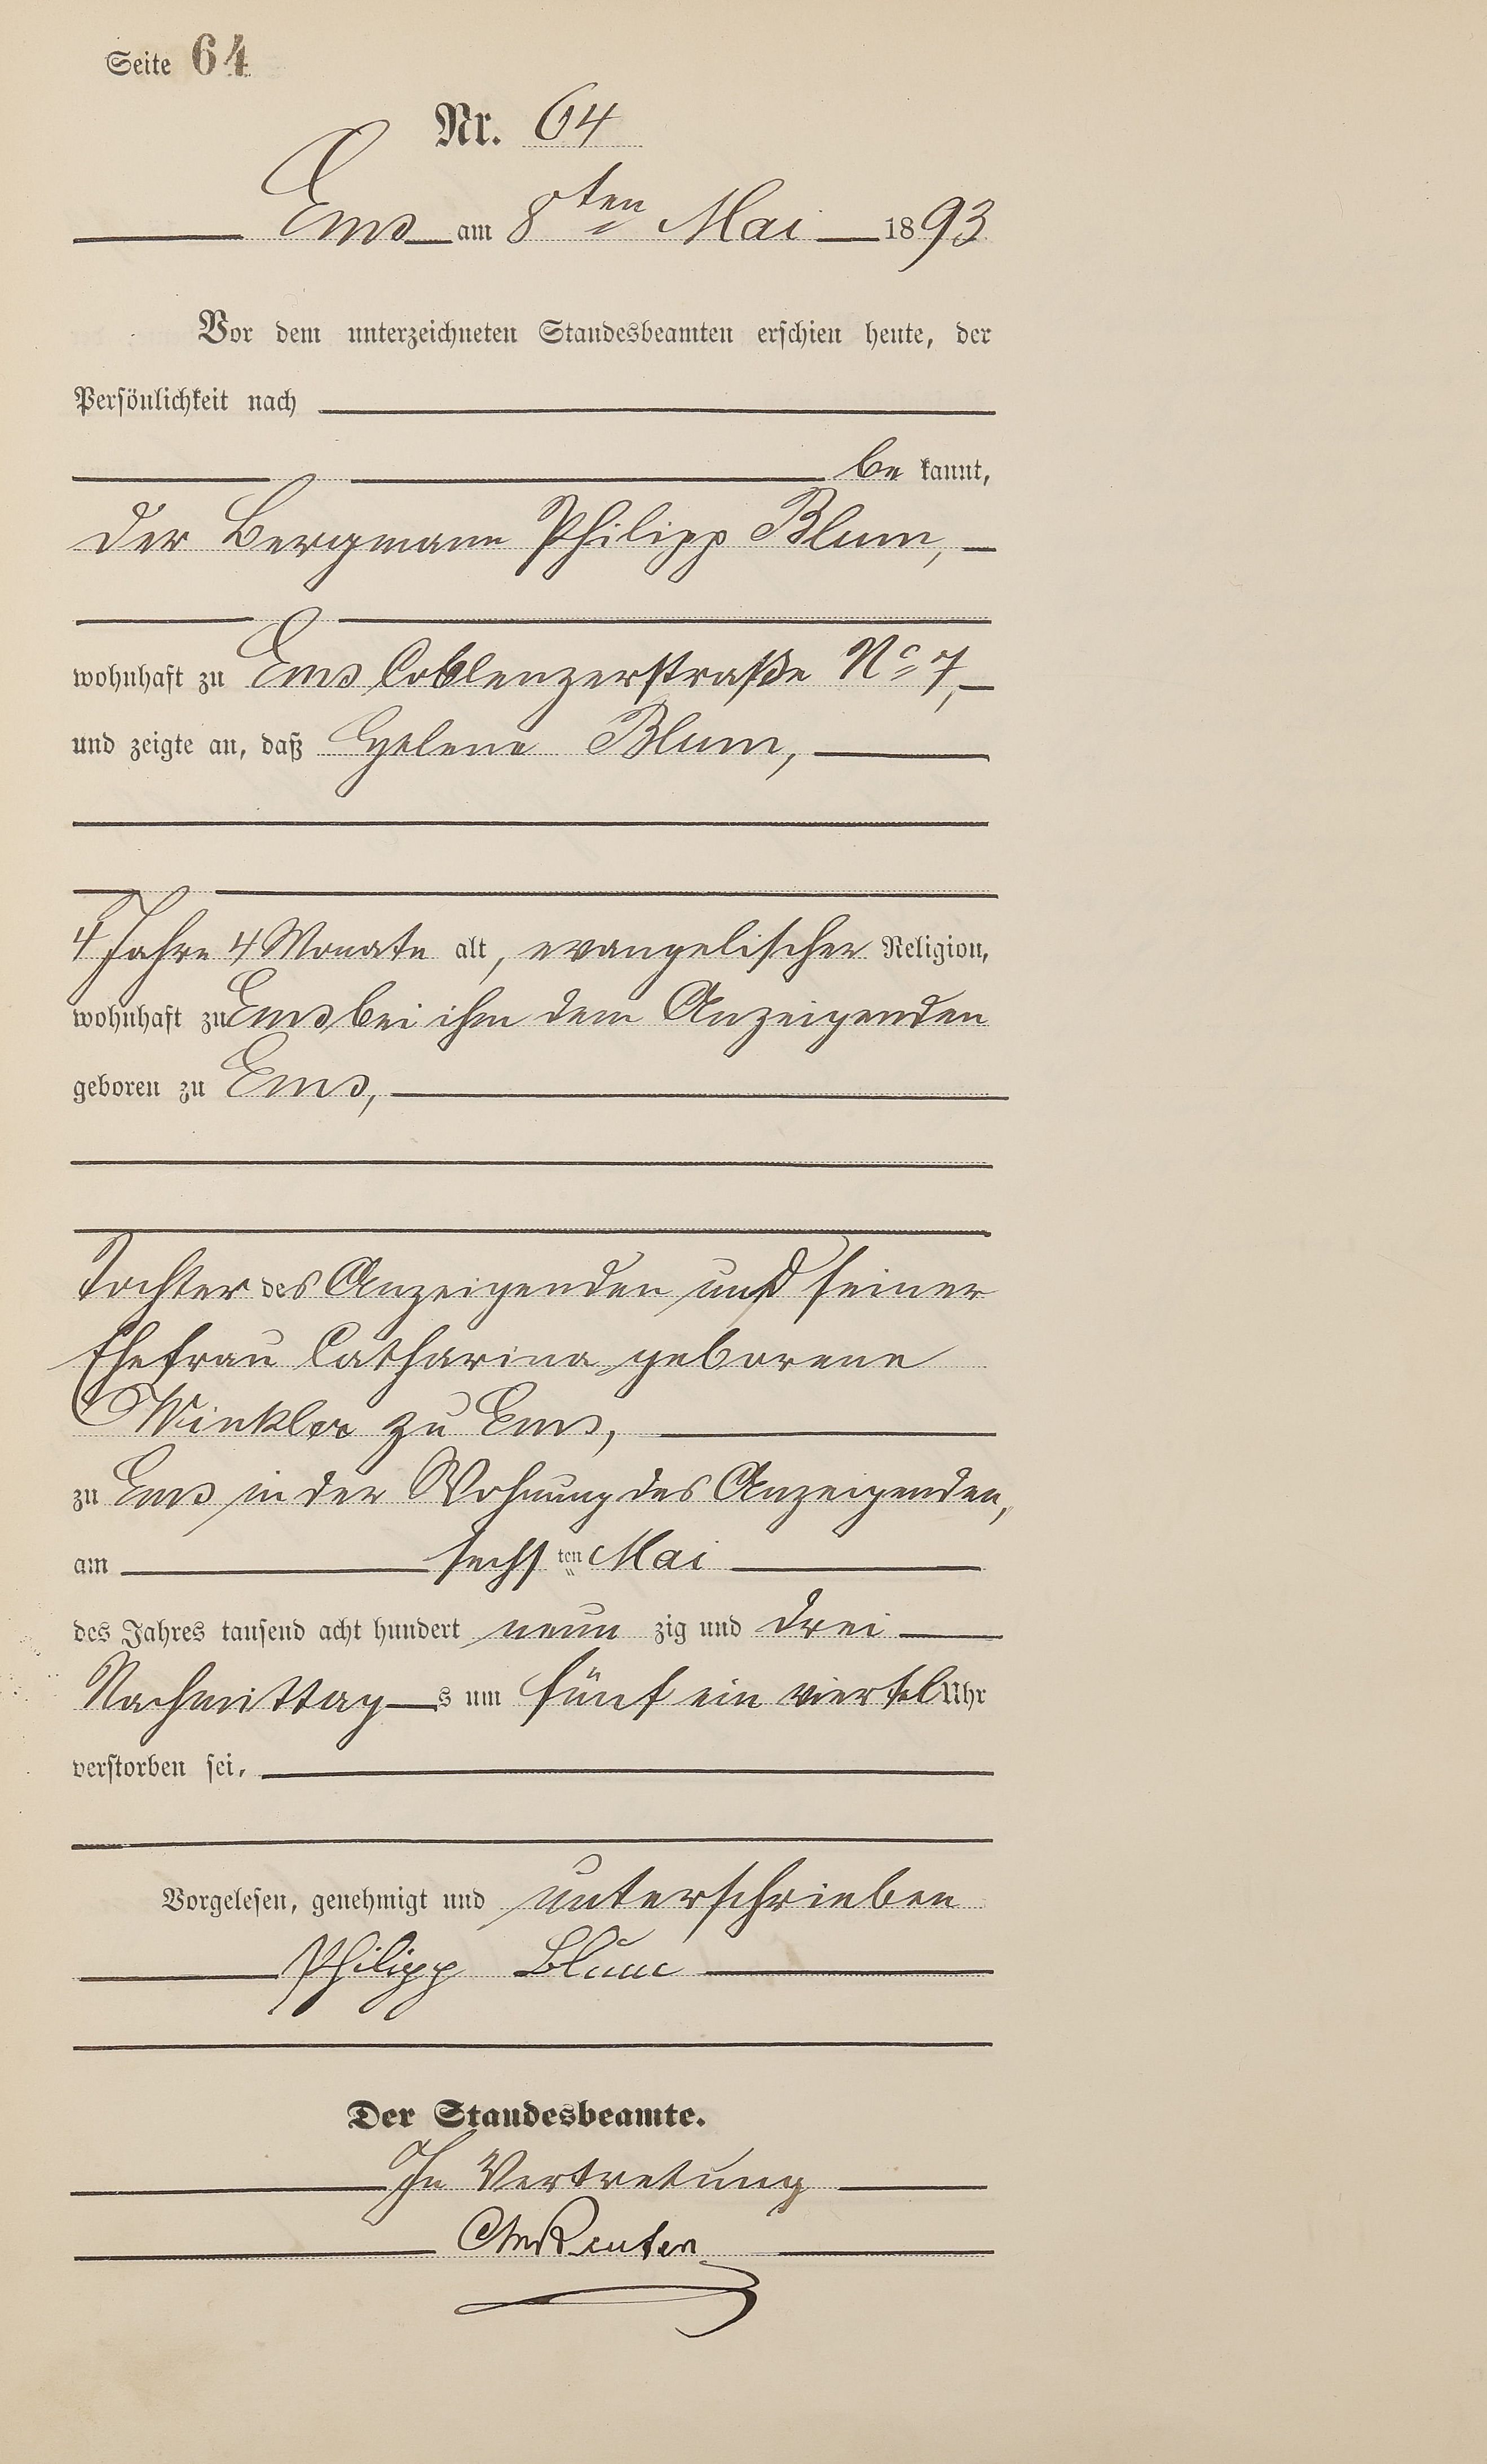 Seite 64
Nr. 64
Ems am 8ten Mai 1893
Vor dem unterzeichneten Standesbeamten erschien heute, der
Persönlichkeit nach
be kannt,
der Bergmann Philipp Blum,
wohnhaft zu Ems Coblenzerstraße No 7,
und zeigte an, daß Helene Blum,
4 Jahre 4 Monate alt, evangelischer Religion,
wohnhaft zu Ems bei ihm dem Anzeigenden
geboren zu Ems,
Tochter des Anzeigenden und seiner
Ehefrau Catharina geborene
Winkler zu Ems,
zu Ems in der Wohnung des Anzeigenden,
am sechs ten Mai
des Jahres tausend acht hundert neun zig und drei
Nachmittag s um fünf ein viertel Uhr
verstorben sei.
Vorgelesen, genehmigt und unterschrieben
Philipp Blum
Der Standesbeamte.
In Vertretung
Reuter